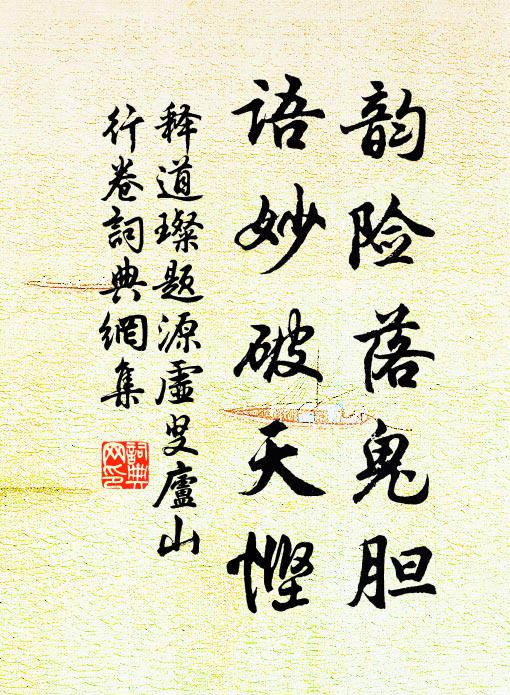 韵险落鬼胆
语妙破天悭
释道璨题源虚叟庐山
行卷词典網集
詞典
网印